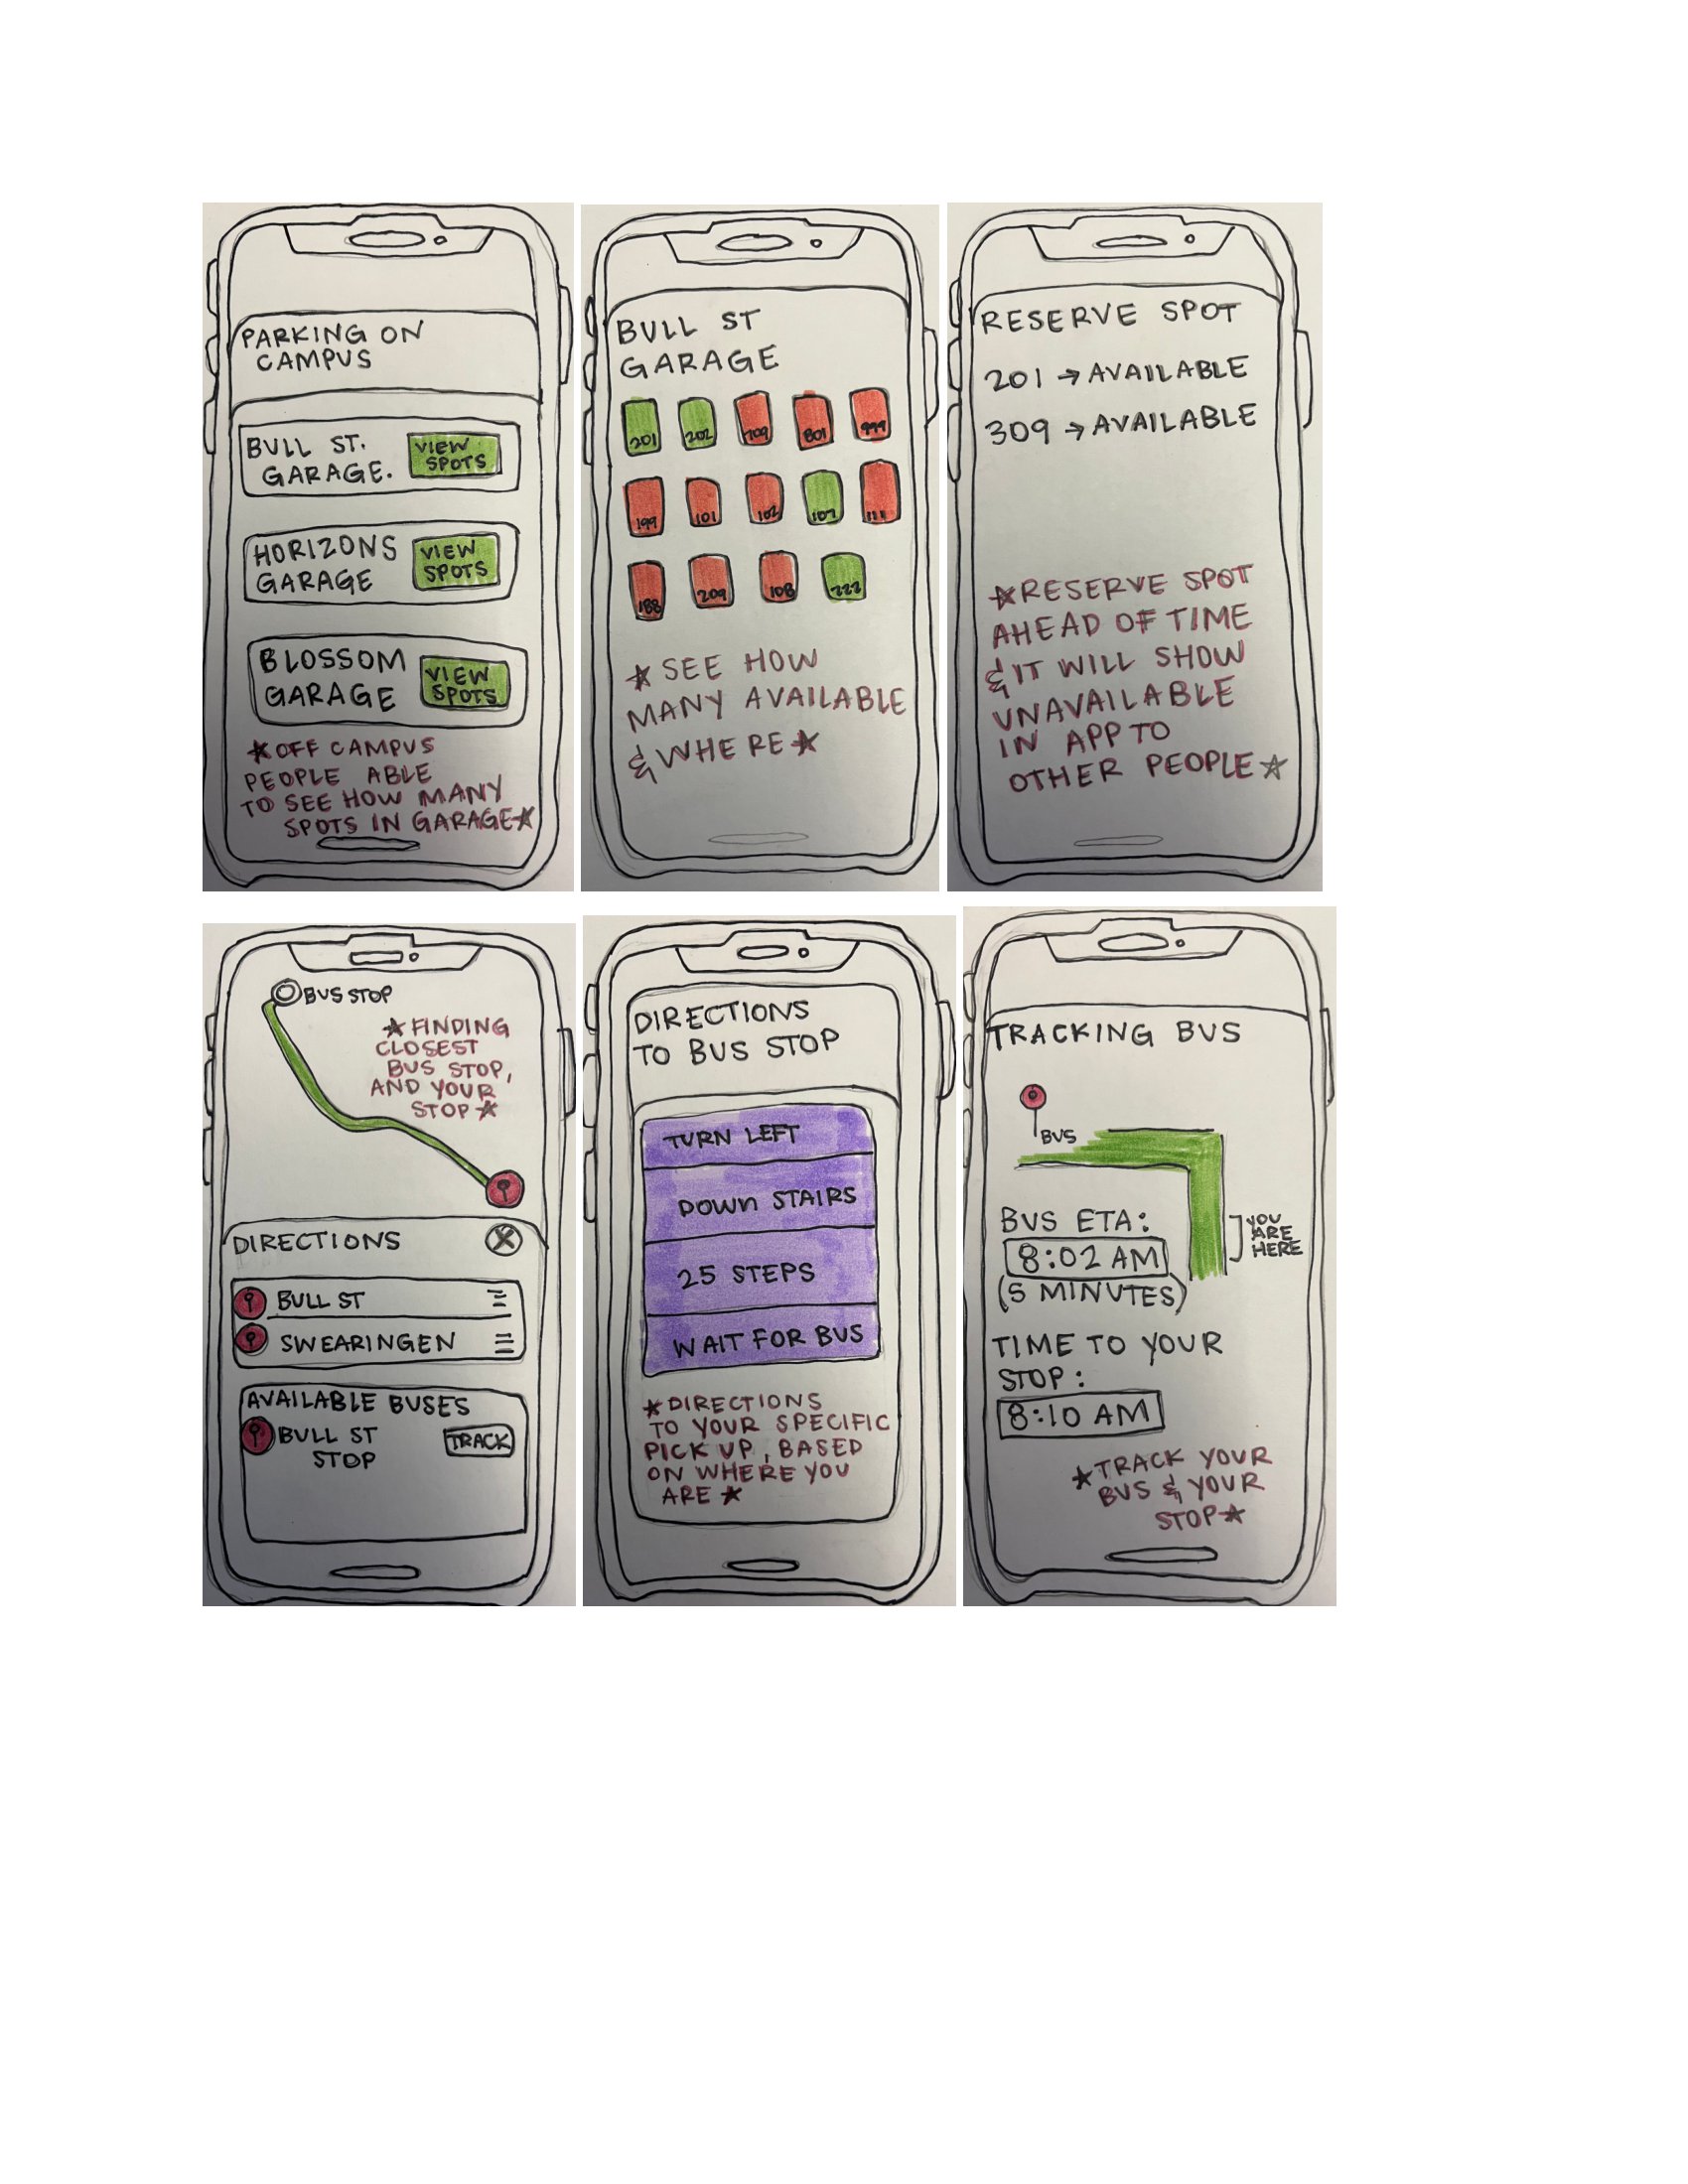 PARKING ON
CAMPUS
BULL ST.
GARAGE.
VIEW
SPOTS
HORIZONS
GARAGE
VIEW
SPOTS
BLOSSOM
GARAGE
VIEW
SPOTS
★OFF CAMPUS
PEOPLE ABLE
TO SEE HOW MANY
SPOTS IN GARAGE★
BULL ST
GARAGE
201 202 709 801 999
199 101 102 107 111
188 209 108 222
★SEE HOW
MANY AVAILABLE
& WHERE★
RESERVE SPOT
201 → AVAILABLE
309 → AVAILABLE
★RESERVE SPOT
AHEAD OF TIME
& IT WILL SHOW
UNAVAILABLE
IN APP TO
OTHER PEOPLE★
BUS STOP
★FINDING
CLOSEST
BUS STOP,
AND YOUR
STOP★
DIRECTIONS
BULL ST
SWEARINGEN
AVAILABLE BUSES
BULL ST
STOP
TRACK
DIRECTIONS
TO BUS STOP
TURN LEFT
DOWN STAIRS
25 STEPS
WAIT FOR BUS
★DIRECTIONS
TO YOUR SPECIFIC
PICK UP, BASED
ON WHERE YOU
ARE★
TRACKING BUS
BUS
YOU
ARE
HERE
BUS ETA:
8:02 AM
(5 MINUTES)
TIME TO YOUR
STOP:
8:10 AM
★TRACK YOUR
BUS & YOUR
STOP★